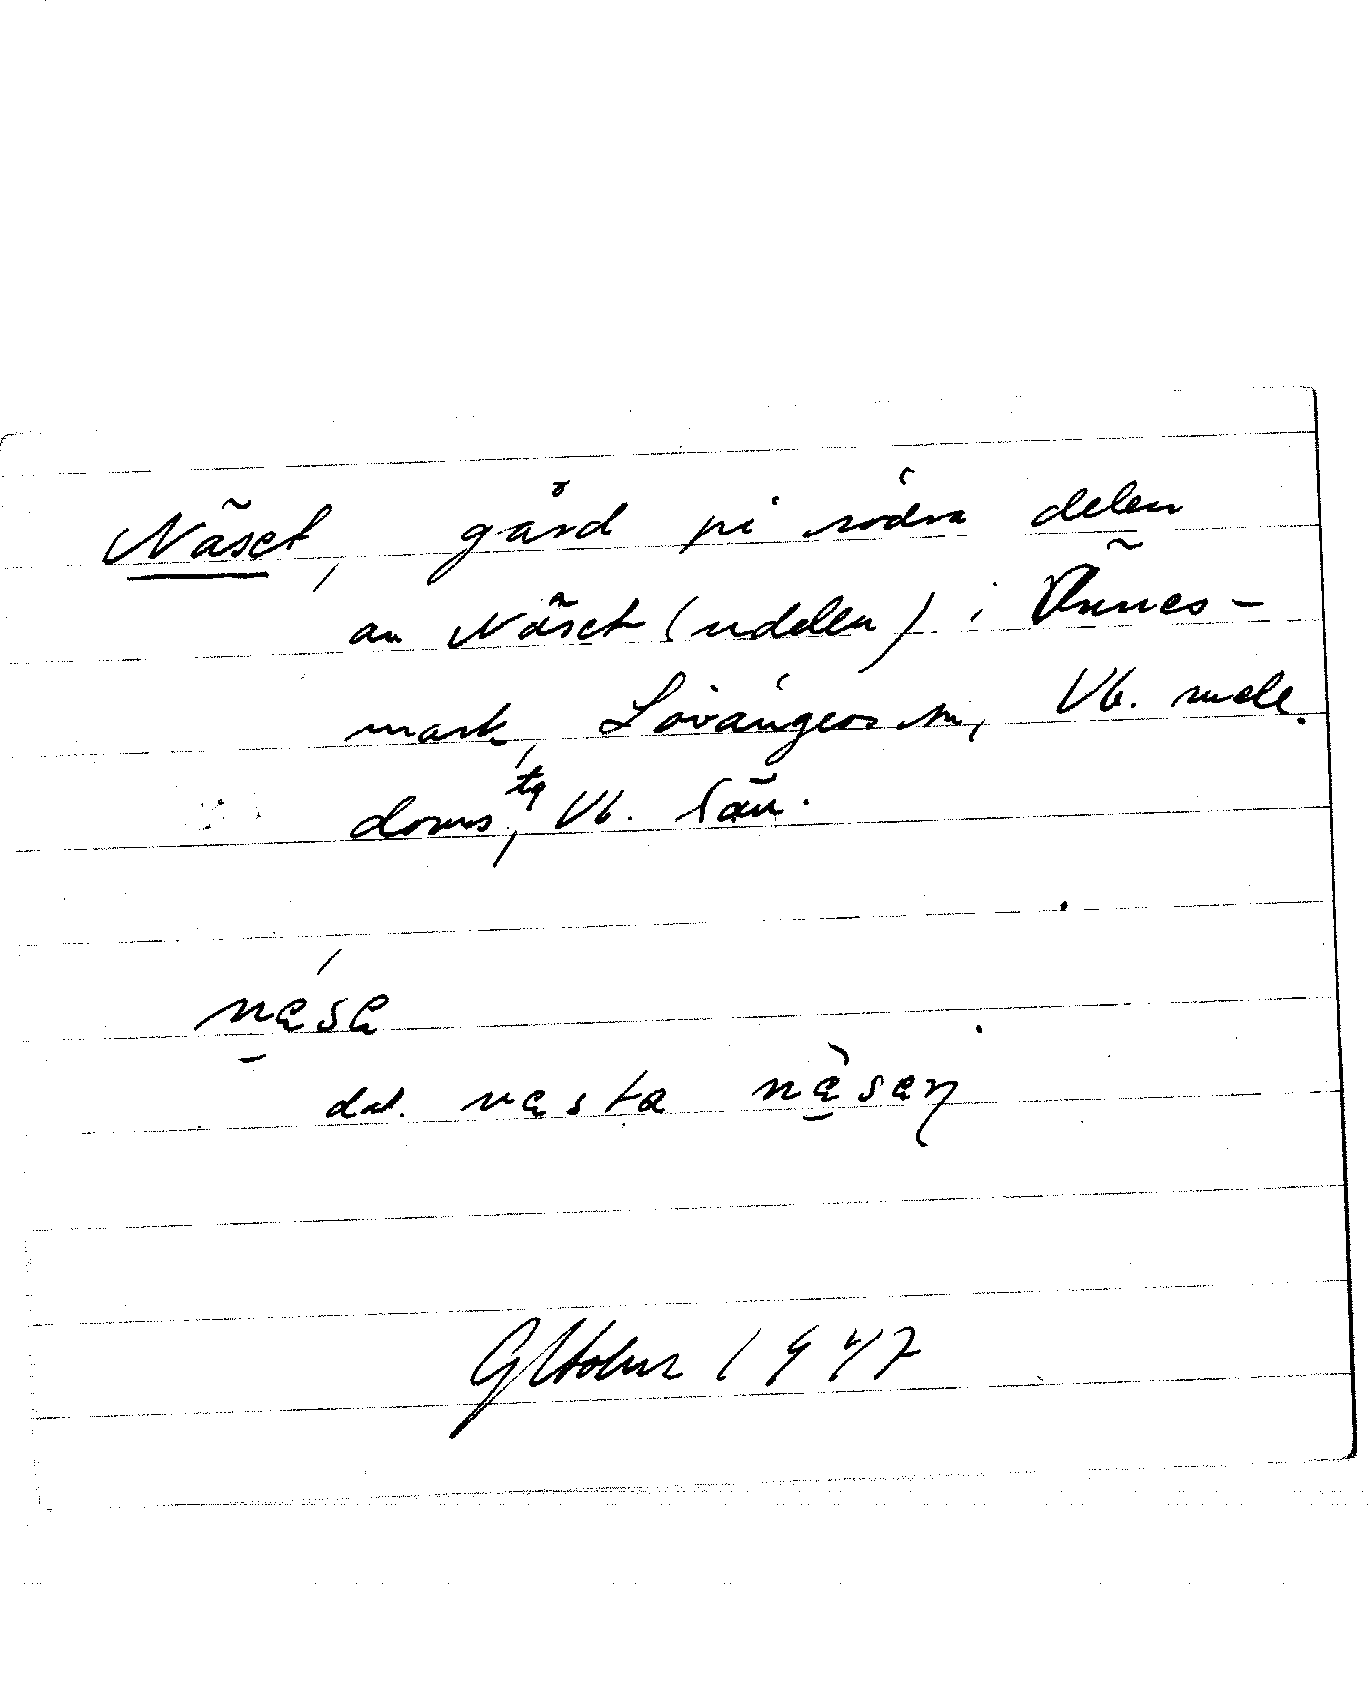 Näset, gård på södra delen
av Näset (udden) i Önnes-
mark, Lövångers sn, Vb. mell.
doms. tg, Vb. län.
näsä
dat. västa näsäṇ
GHolm 1947